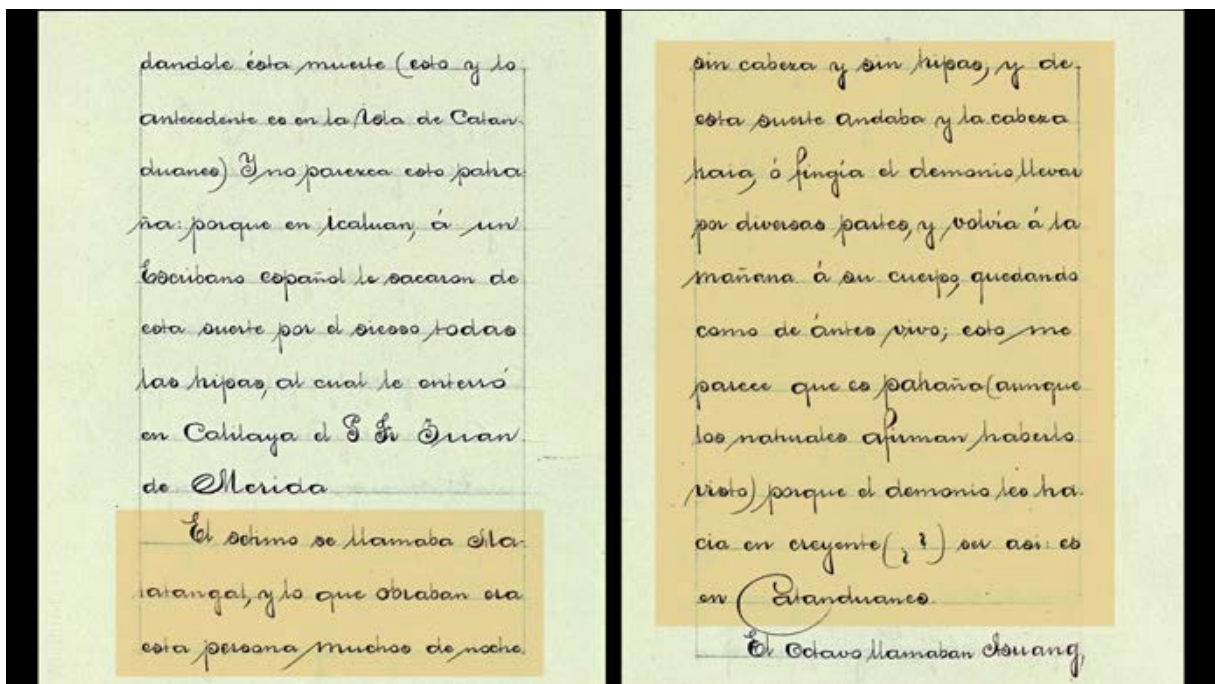 dandole ésta muerte (esto y lo
antecedente es en la Isla de Catan-
duanes) Y no parezca esto patra-
ña: porque en Icaluan, á un
Escribano español le sacaron de
esta suerte por el sicoso todas
las tripas, al cual le enterró
en Calilaya el P. Fr. Juan
de Merida
El sétimo se llamaba Ma-
latangal, y lo que obraban era
esta persona muchos de noche
sin cabeza y sin tripas, y de
esta suerte andaba y la cabeza
traia, ó fingía el demonio llevar
por diversas partes, y volvia á la
mañana á su cuerpo, quedando
como de ántes vivo; esto me
parece que es patraña (aunque
los naturales afirman haberlo
visto) porque el demonio les ha-
cia en creyente (¿ ?) ser asi: es
en Catanduanes.
El octavo llamaban Asuang,